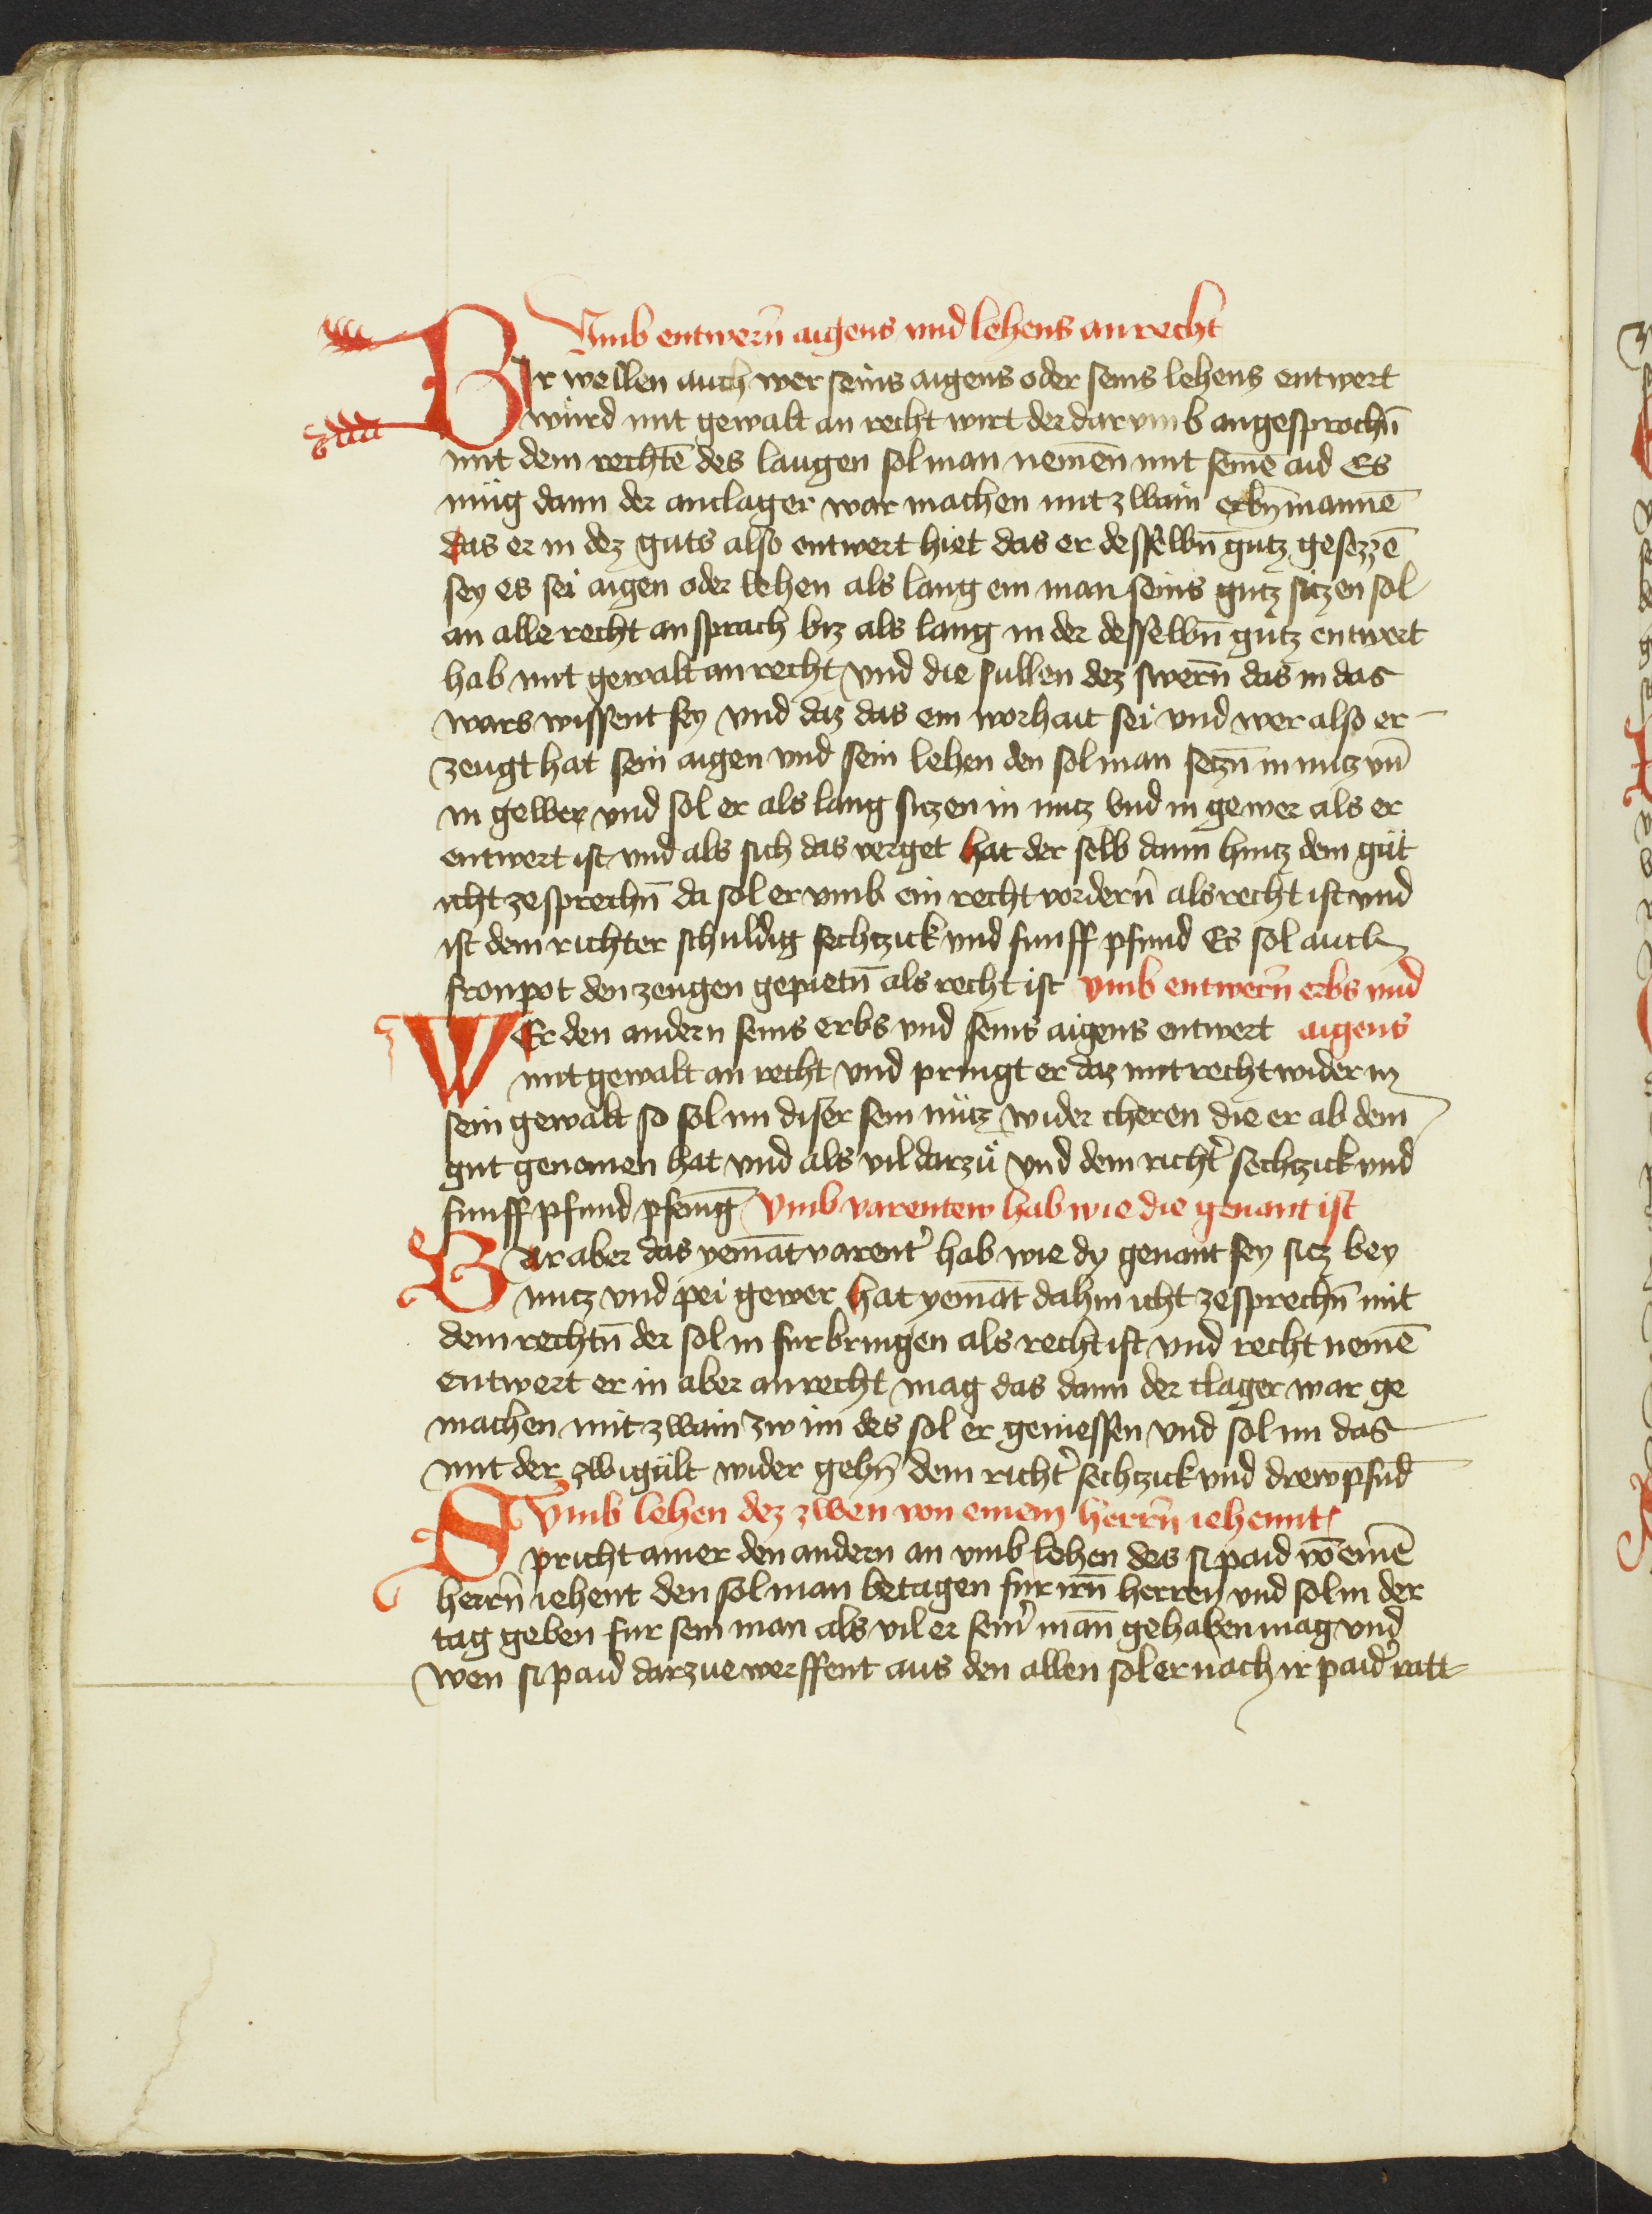 Vmb entwern̄ aigens vnd lehens an recht
Bir wellen auch wer seins aigens oder seins lehens entwert
würd mit gewalt an recht wirt der dar vmb angesprochn̄
mit dem rechtē des laugen sol man nemen mit seinē aid Es
müg dann der anclager war machen mit zwain erbn̄ mannē
das er in dez guts also entwert hiet das er desselbn̄ gutz gesezzē
sey es sei aigen oder lehen als lang ein man seins gutz sitzen sol
an alle recht an sprach biz als lang in der desselbn̄ gutz entwert
hab mit gewalt an recht vnd die sullen dez swern̄ das in das
wars wissent sey vnd daz das ein worhait sei vnd wer also er
zeugt hat sein aigen vnd sein lehen den sol man setzn̄ in nutz vn̄
in gewer vnd sol er als lang sitzen in nutz vnd in gewer als er
entwert ist vnd als sich das verget hat der selb dann hintz dem güt
icht ze sprechn̄ da sol er vmb ein recht vordern̄ als recht ist vnd
ist dem richter schuldig sechtzick vnd funff pfund Es sol auch
fronpot den zeugen gepietn̄ als recht ist vmb entwern̄ erbs vnd
WEr den andern seins erbs vnd seins aigens entwert aigens
mit gewalt an recht vnd pringt er daz mit recht wider in
sein gewalt so sol im diser sein nütz wider cheren die er ab dem
gut genomen hat vnd als vil darzů vnd dem richt' sechtzick vnd
funff pfund pfenīg Vmb varentew hab wie die genant ist
Bar aber das yemāt varent' hab wie dy genant sey sitz bey
nutz vnd pei gewer hat yemāt dahin icht ze sprechn̄ mit
dem rechtn̄ der sol in furbringen als recht ist vnd recht nemē
entwert er in aber an recht mag das dann der clager war ge
machen mit zwain zw im des sol er geniessen vnd sol im das
mit der zwigült wider gebn̄ dem richt' sechtzick vnd drew pfūd
Vmb lehen dez zwen von einem herrn̄ iehennt
Spricht ainer den andern an vmb lehen des si paid vō einē
herrn̄ iehent den sol man betagen fur irn̄ herren vnd sol in der
tag geben fur sein man als vil er sein' man̄ gehaben mag vnd
wen si paid darzue werffent aus den allen sol er nach ir paid' ratt